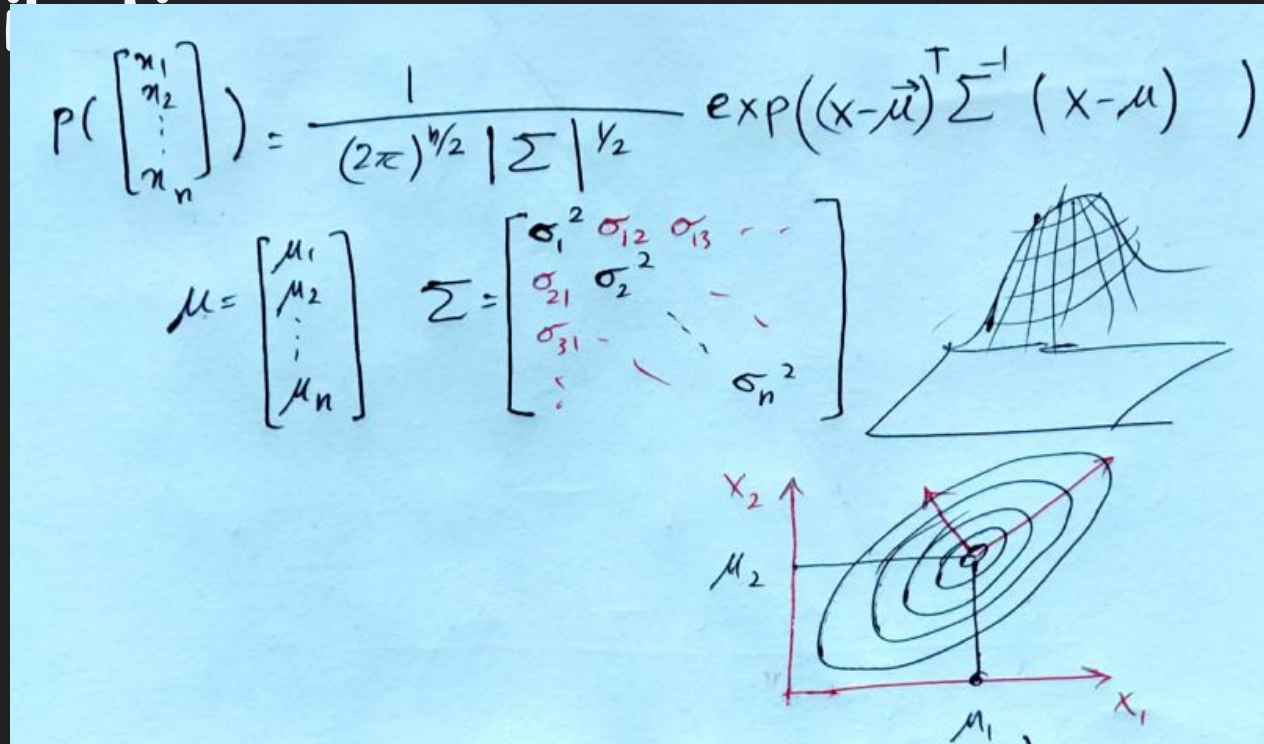 p([x₁ x₂ ⋮ xₙ]) = 1 / ((2π)^{n/2} |Σ|^{1/2}) exp((x-μ⃗)ᵀ Σ⁻¹ (x-μ) )
μ = [μ₁ μ₂ ⋮ μₙ] Σ = [σ₁² σ₁₂ σ₁₃ ⋯ σ₂₁ σ₂² σ₃₁ ⋮ ⋱ σₙ²]
X₂
μ₂
X₁
μ₁